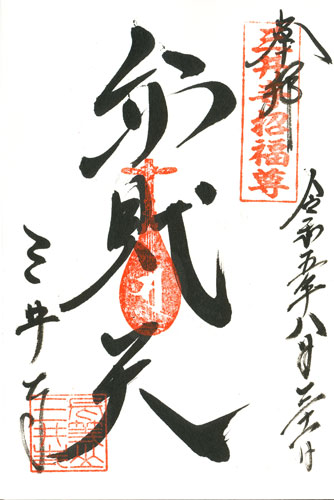 奉拝
三井寺招福尊
令和五年八月二十六日
弁財天
三井寺